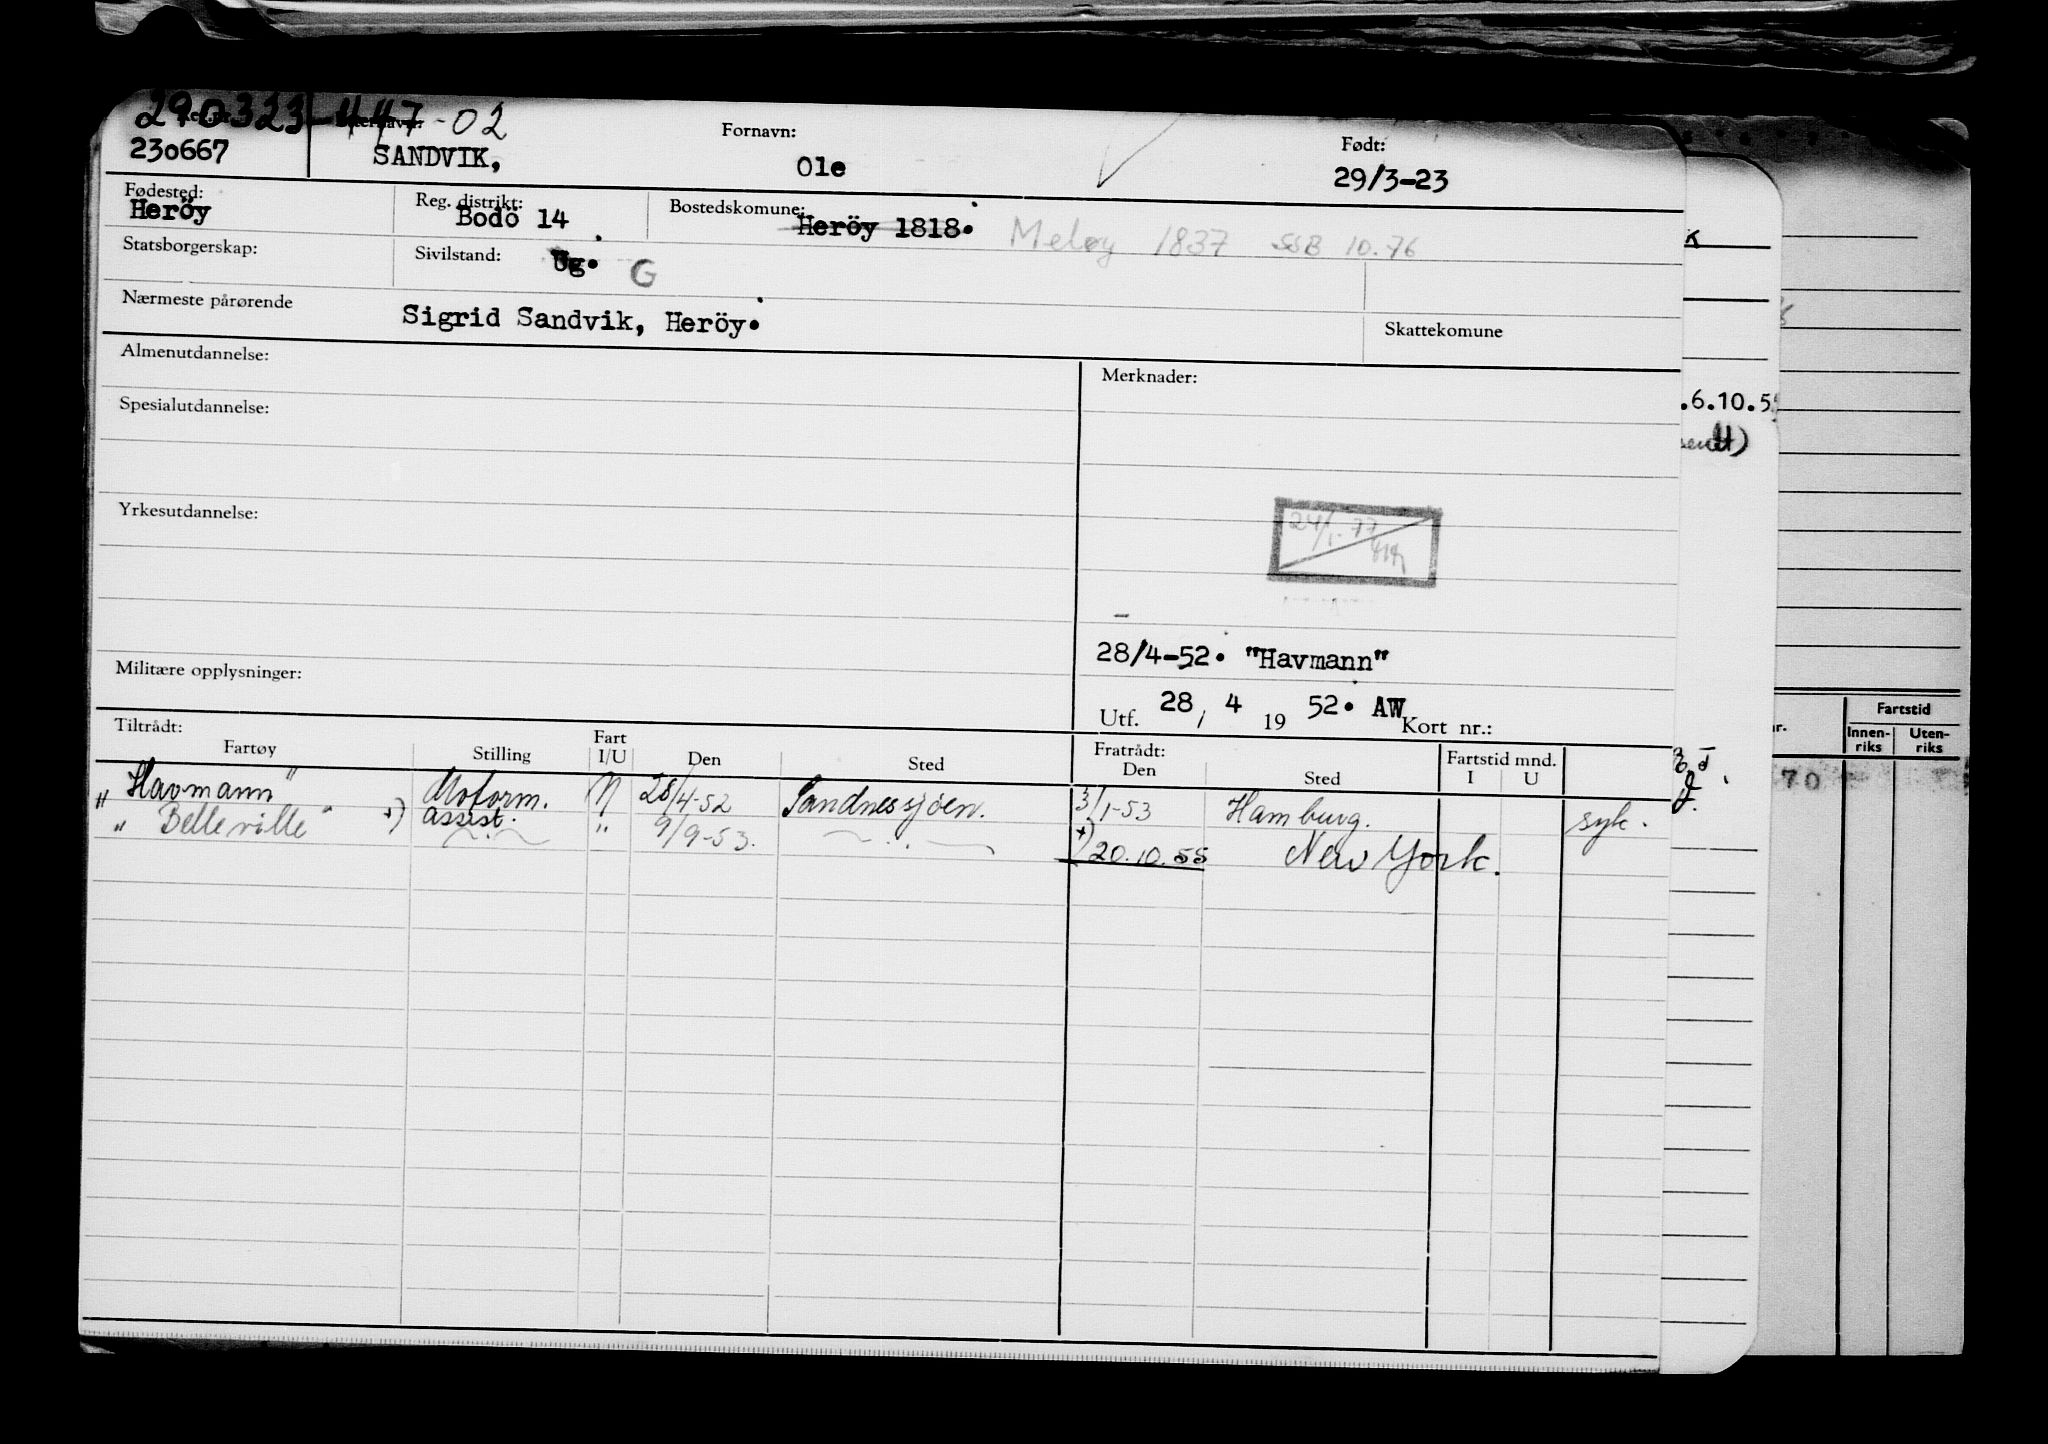 290323-447-02
Fornavn:
Født:
230667 SANDVIK, Ole 29/3-23
Fødested: Reg. distrikt: Bostedskomune:
Heröy Bodö 14 Heröy 1818. Meløy 1837 SSB 10.76
Statsborgerskap: Sivilstand: Ug. G
Nærmeste pårørende Sigrid Sandvik, Heröy.
Skattekomune
Almenutdannelse: Merknader:
.6.10.5
Spesialutdannelse:
Yrkesutdannelse:
24/1-77
28/4-52. "Havmann"
Militære opplysninger:
Utf. 28, 4 19 52. AW Kort nr.:
Tiltrådt: Fratrådt:
Fartøy Stilling Fart I/U Den Sted Den Sted Fartstid mnd. I U
Fartstid
Innen-riks Uten-riks
"Havmann" Motorm. N 28/4-52 Sandnessjøen. 3/1-53 Hamburg. syk.
assist.
" Belleville " +) " 9/9-53. +) 20.10.55 New York.
70